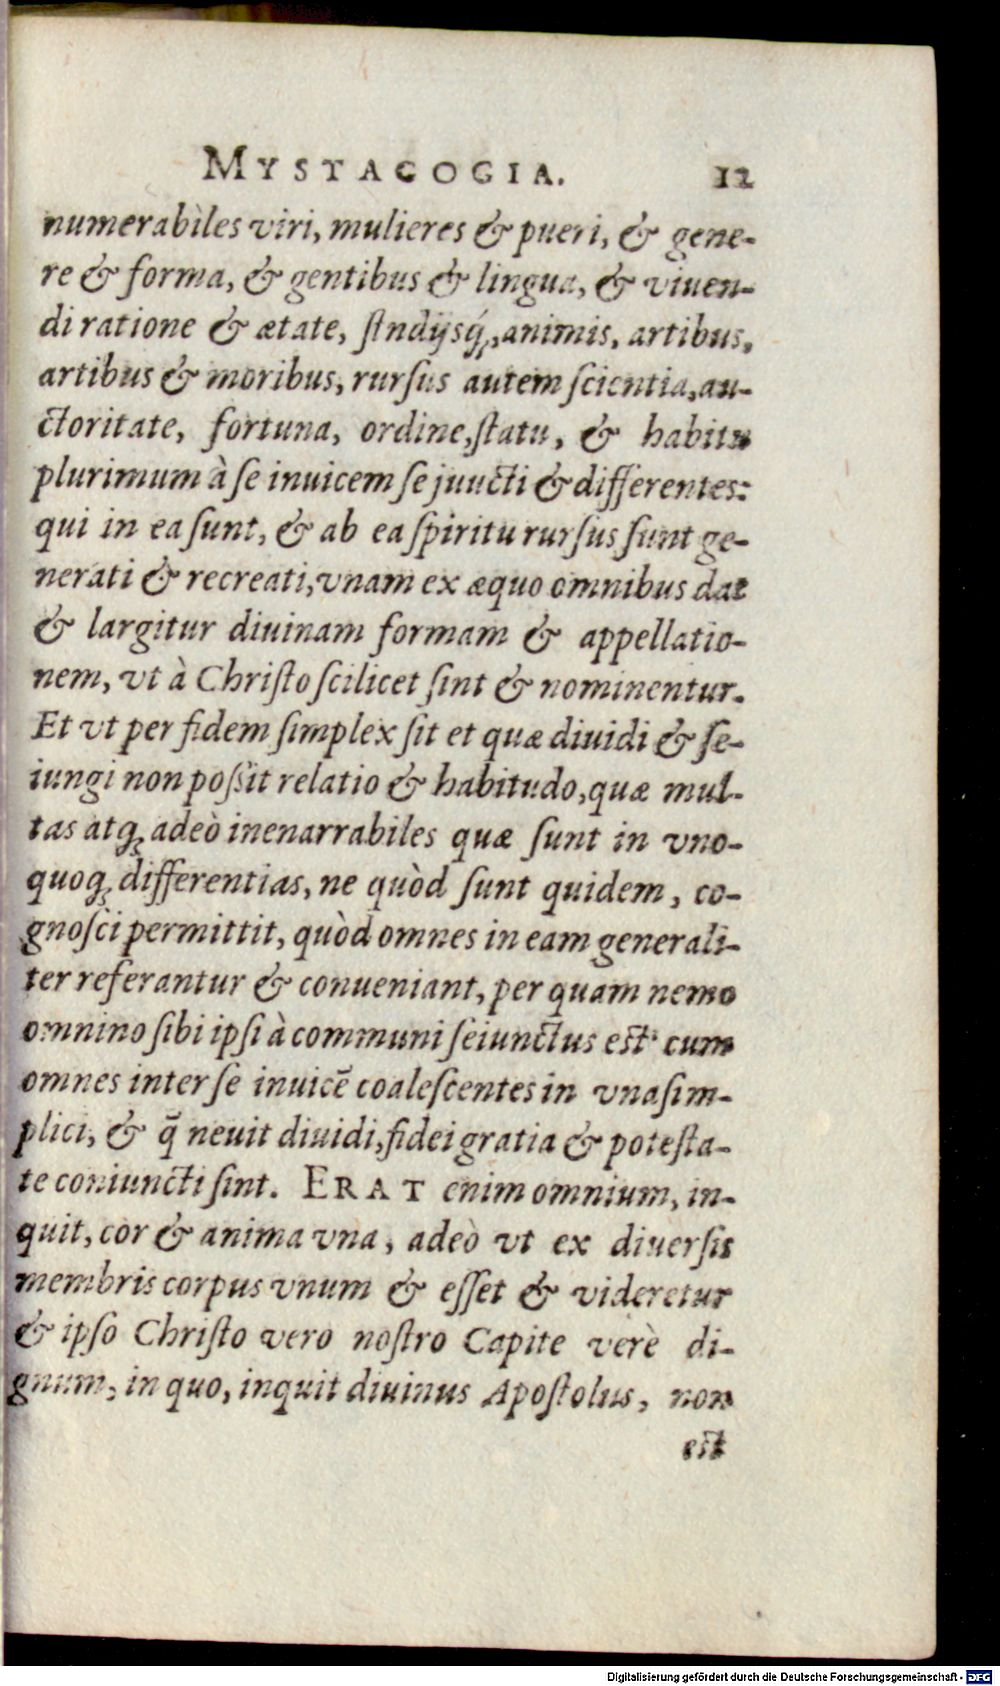 MYSTAGOGIA. 12
numerabiles viri, mulieres & pueri, & gene-
re & forma, & gentibus & lingua, & viuen-
di ratione & ætate, stndijsq́;, animis, artibus,
artibus & moribus, rursus autem scientia, au-
ctoritate, fortuna, ordine, statu, & habitu
plurimum à se inuicem se juucti & differentes:
qui in ea sunt, & ab ea spiritu rursus sunt ge-
nerati & recreati, vnam ex æquo omnibus dat
& largitur diuinam formam & appellatio-
nem, vt à Christo scilicet sint & nominentur.
Et vt per fidem simplex sit et quæ diuidi & se-
iungi non possit relatio & habitudo, quæ mul-
tas atq; adeò inenarrabiles quæ sunt in vno-
quoq; differentias, ne quòd sunt quidem, co-
gnosci permittit, quòd omnes in eam generali-
ter referantur & conueniant, per quam nemo
omnino sibi ipsi à communi seiunctus est: cum
omnes inter se inuicē coalescentes in vna sim-
plici, & q̃ neuit diuidi, fidei gratia & potesta-
te coniuncti sint. ERAT enim omnium, in-
quit, cor & anima vna, adeò vt ex diuersis
membris corpus vnum & esset & videretur
& ipso Christo vero nostro Capite verè di-
gnum, in quo, inquit diuinus Apostolus, non
est
Digitalisierung gefördert durch die Deutsche Forschungsgemeinschaft - DFG